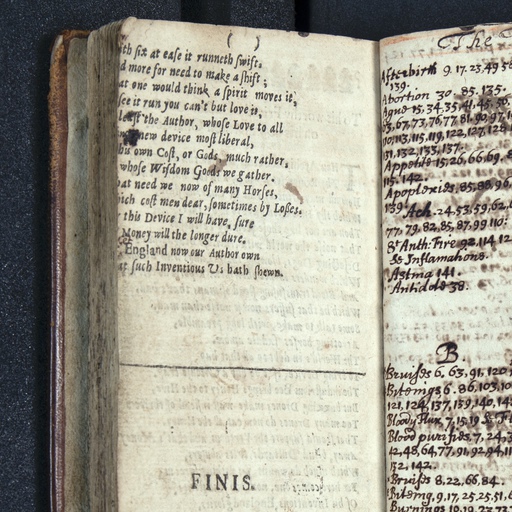 ( )
ith six at ease it runneth swift;
d more for need to make a shift;
at one would think a spirit moves it,
see it run you can't but love it,
least the Author, whose Love to all
new device most liberal,
his own Cost, or Gods, much rather,
whose Wisdom Goods we gather.
at need we now of many Horses,
ich cost men dear, sometimes by Losses.
this Device I will have, sure
Money will the longer dure.
England now our Author own
at such Inventions Us hath shewn.
FINIS.
The
Afterbirth 9. 17. 23. 49. 56
139.
Abortion 30. 85. 135.
Ague 15, 34, 35, 41, 45, 56,
63, 67, 73, 76, 77, 81, 90, 97, 1
10, 113, 115, 119, 122, 127, 128
131, 132, 133, 137.
Appetite 15, 26, 66, 69, 8
115. 142.
Apoplexies, 85, 88, 96,
139. Ach. 24, 53, 59, 62, 6
77, 79, 82, 85, 87, 99, 110:
St Anth: Fire 92, 114, 12
& Inflamations.
Astma 141.
Antidote 38.
B
Bruises 6, 63, 91, 120
Biteings 6. 86, 103, 10
121, 124, 137, 139, 140, 14
Bloody Flux 7, 15, 19 &
Blood purifies 7, 24, 3
42, 48, 64, 77, 91, 92, 94, 11
132, 142.
Bruises 8, 22, 66, 84.
Biteing, 9, 17, 25, 25, 51, 6
Burnings 10, 19, 23, 72